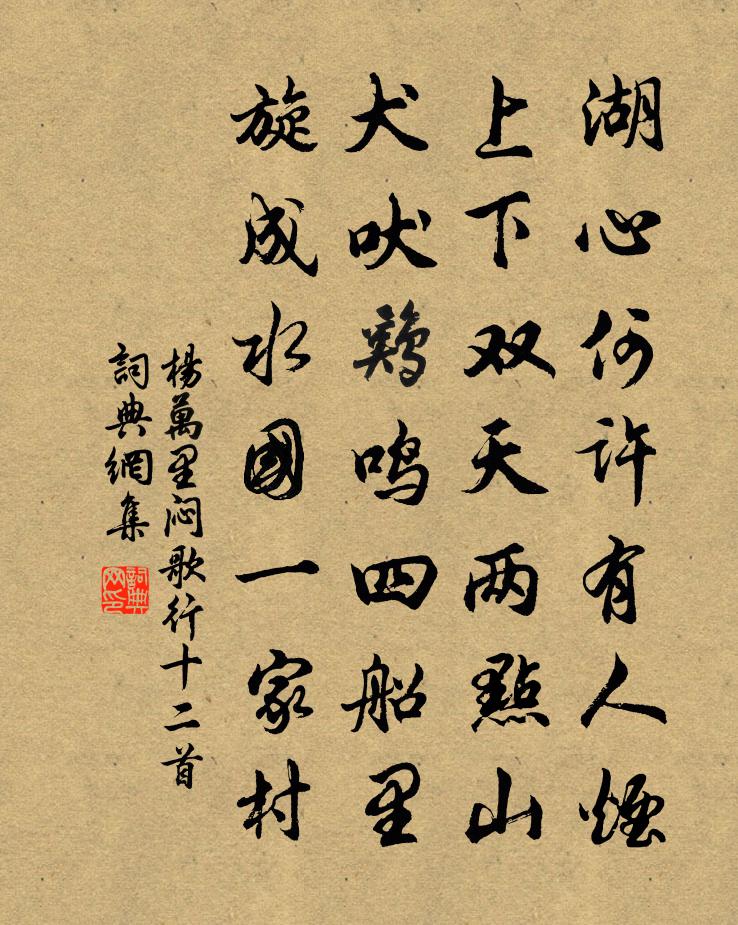 湖心何许有人煙
上下双天两點山
犬吠鷄鸣四船里
旋成水國一家村
楊萬里闷歌行十二首
詞典網集
詞典网印